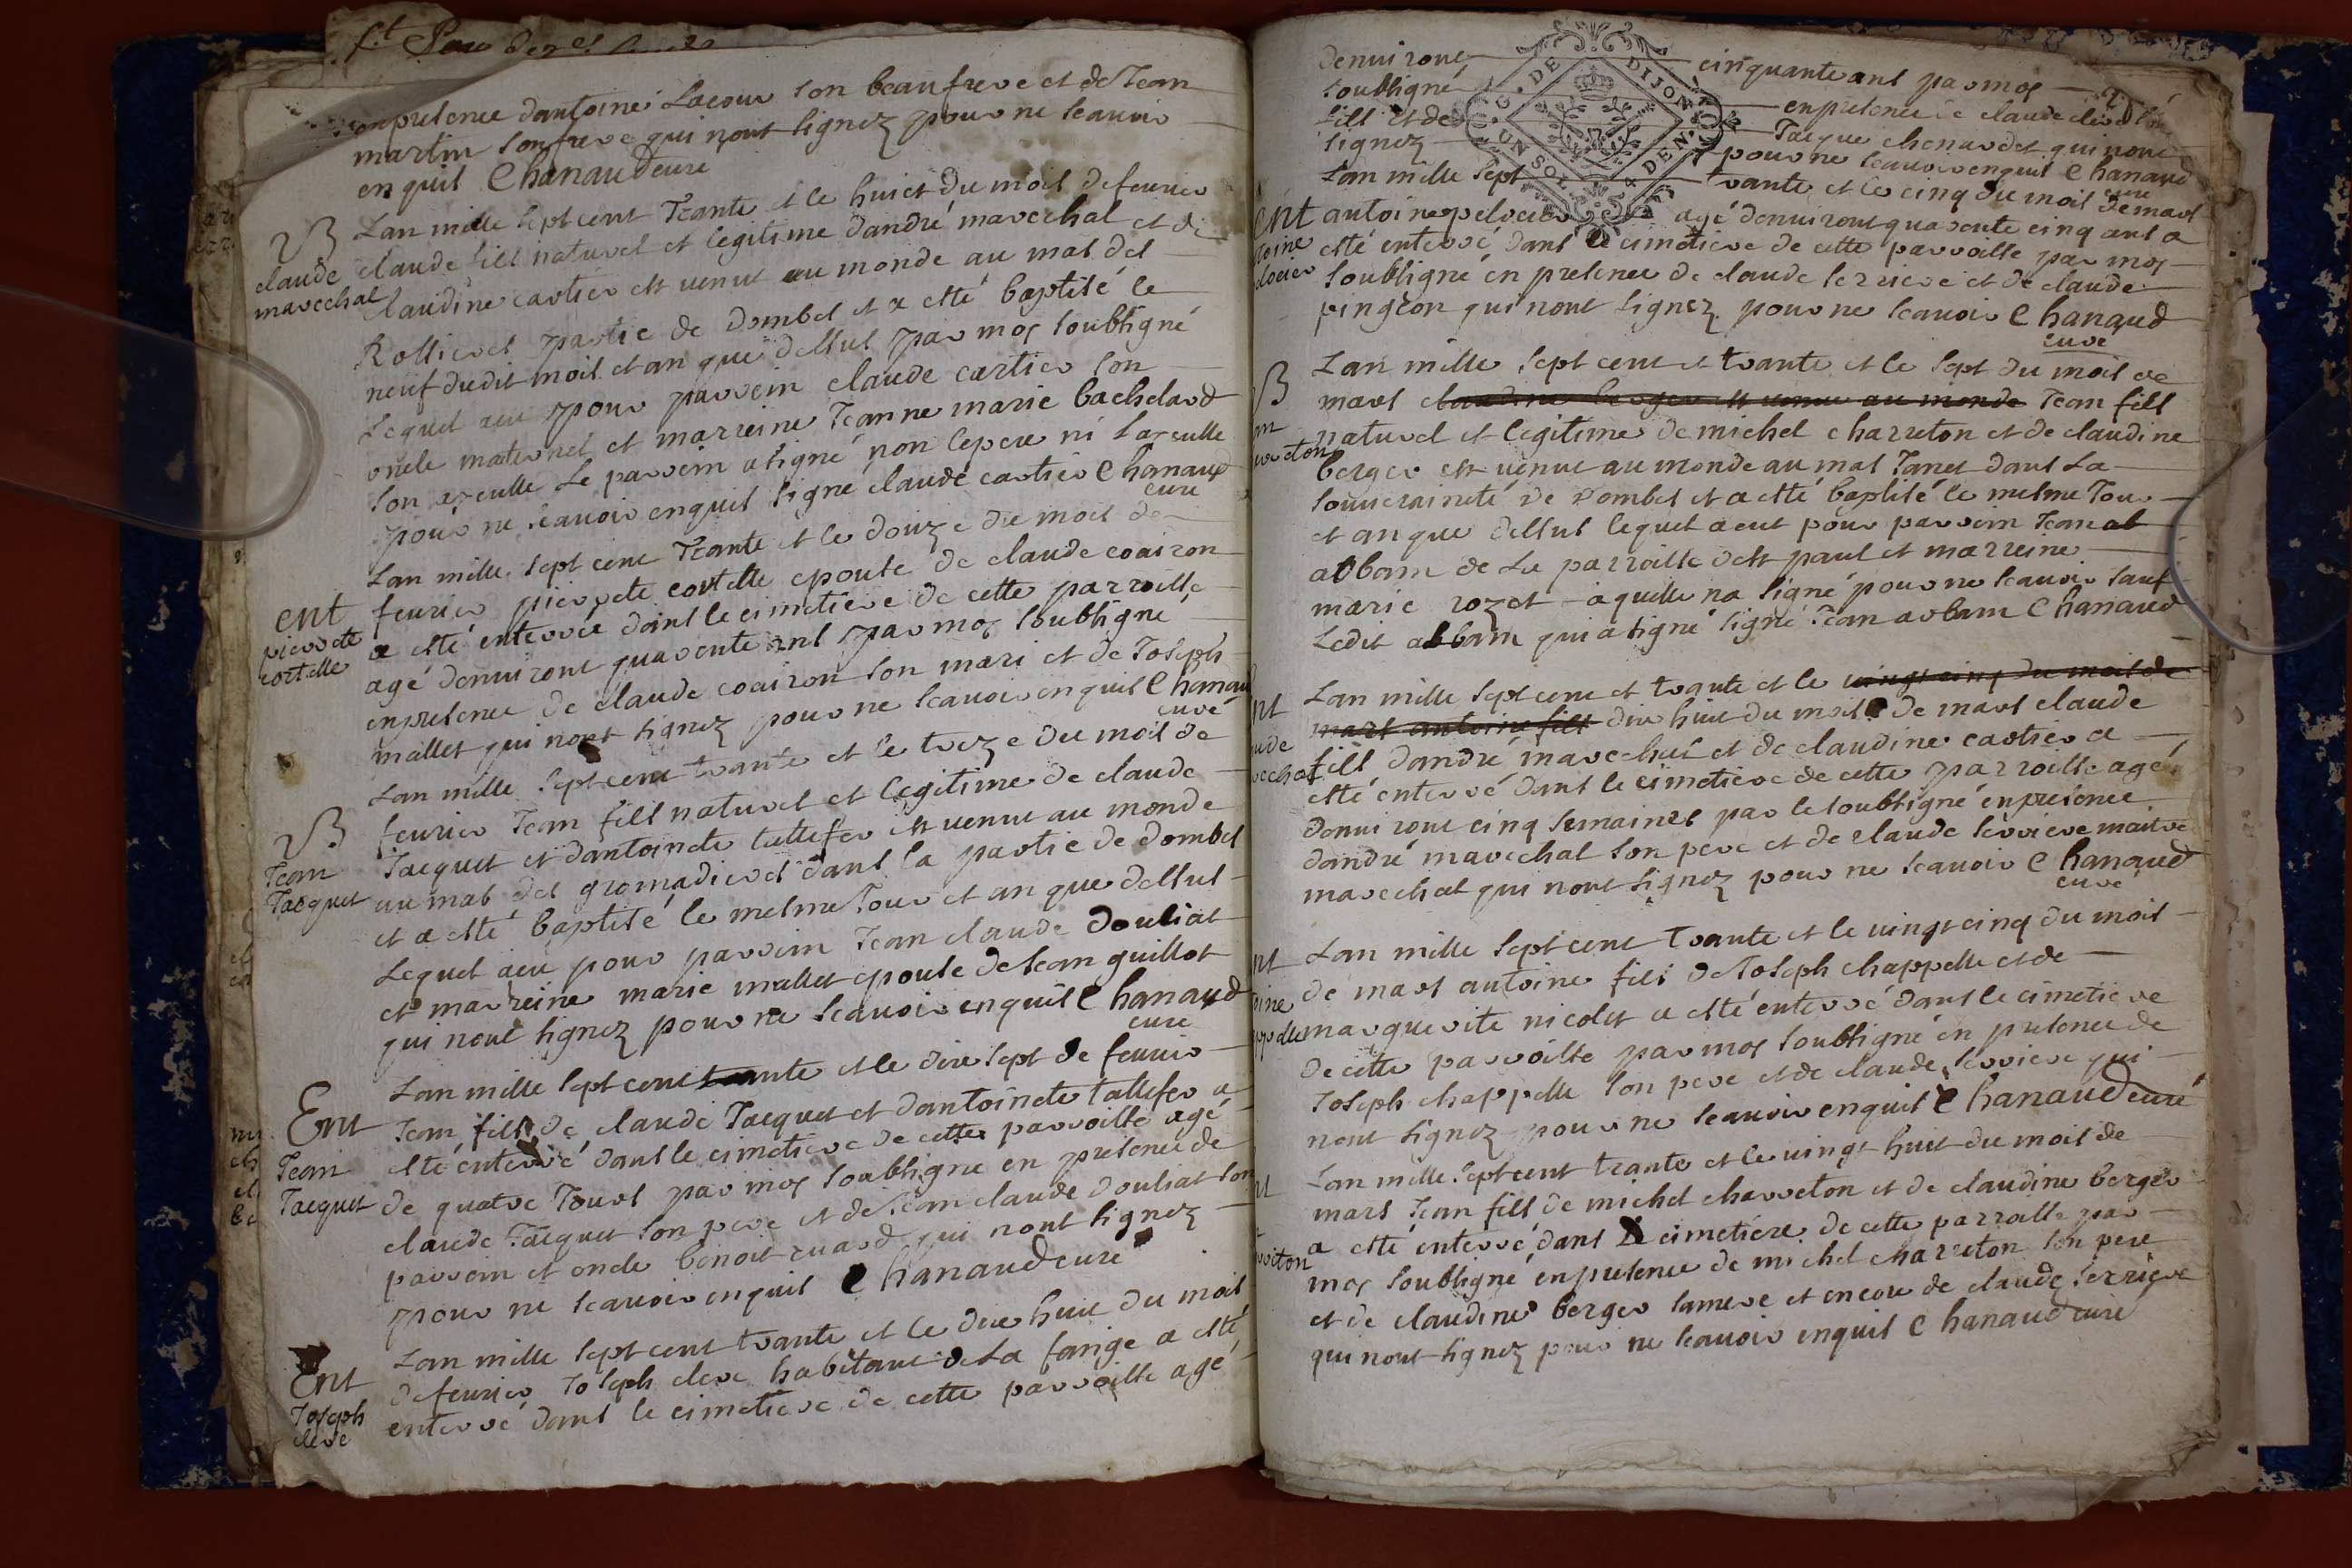 enpresence dantoine Lacour son beaufrere et de Jean
martin son frere qui nont signez pour ne scauoir
enquis Chanaud curé
B
claude
marechal
Lan mille sept cent trante et le huict du mois de feurier
claude fils naturel et legitime dandré marechal et de
claudine cartier est venut au monde au mas des
Rollieres partie de dombes et a esté baptisé le
neuf dudit mois et an que dessus par moy soubsigné
Lequel a eu pour parrein claude cartier son
oncle maternel et marreine Jeanne marie bachelard
son le parrein a signé non le pere ni
pour ne scauoir enquis signé claude cartier Chanaud
curé
ent
pierrete
cortelle
Lan mille sept cent trante et le douze du mois de
feurier pierrete cortelle epouse de claude coairon
a esté enterrée dans le cimetiere de cette parroisse
agé denuiront quarente ans par moy soubsigné
enpresence de claude coairon son mari et de Joseph
mallet qui nont signez pour ne scauoir enquis Chanau
curé
B
Jean
Jacquet
Lan mille sept cent trante et le treze du mois de
feurier Jean fils naturel et legitime de claude
Jacquet et dantoinete tallefer est venut au monde
au mas des gromadieres dans la partie de dombes
et a esté baptisé le mesme Jour et an que dessus
Lequel a eu pour parrein Jean claude douliat
et marreine marie mallet epouse de Jean guillot
qui nont signez pour ne scauoir enquis Chanaud
curé
Ent
Jean
Jacquet
Lan mille sept cent trante et le dixe sept de feurier
Jean fils de claude Jacquet et dantoinete tallefer a
esté enterré dans le cimetiere de cette parroisse agé
de quatre Jours par moy soubsigné en presence de
claude Jacquet son pere et de Jean claude douliat son
parrein et oncle benoit ruard qui nont signez
pour ne scauoir enquis Chanaud curé
Ent
Joseph
clere
Lan mille sept cent trante et le dixe huit du mois
de feurier Joseph clere habitant de La fange a esté
enterré dans le cimetiere de cette parroisse agé
denuiront cinquante ans par moy
soubsigné enpresence de claude clere son
fils et de Jacque chenardet qui nont
signez pour ne scauoir enquis Chanaud
curé
G. DE DIJON
UN SOL 4 DEN.
Lan mille sept trante et le cinq du mois de mars
ent
toine
elocier
antoine pelocier agé denuiront quarente cinq ans a
esté enterré dans le cimetiere de cette parroisse par moy
soubsigné en presence de claude serriere et de claude
pingeon qui nont signez pour ne scauoir Chanaud
curé
B
rreton
Lan mille sept cent et trante et le sept du mois de
mars claudine berger est venue au monde Jean fils
naturel et legitime de michel charreton et de claudine
berger est venut au monde au mas Janes dans La
souueraineté de dombes et a esté baptisé le mesme Jour
et an que dessus lequel a eut pour parrein Jean al
abbam de La parroisse de st paul et marreine
marie rozet aquelle na signé pour ne scauoir sauf
Ledit albam qui a signé signé Jean arbam Chanaud
nt
ude
rechal
Lan mille sept cent et trante et le vingt cinq du mois de
mars antoine fils dix huit du mois de mars claude
fils dandré marechal et de claudine cartier a
esté enterré dans le cimetiere de cette parroisse agé
denuiront cinq semaines par le soubsigné enpresence
dandré marechal son pere et de claude serriere maitre
marechal qui nont signez pour ne scauoir Chanaud
curé
nt
oine
ppelle
Lan mille sept cent trante et le vingt cinq du mois
de mars antoine fils de Joseph chappelle et de
marguerite nicolet a esté enterré dans le cimetiere
de cette parroisse par moy soubsigné en presence de
Joseph chappelle son pere et de claude serriere qui
nont signez pour ne scauoir enquis Chanaud curé
nt
rreton
Lan mille sept cent trante et le vingt huit du mois de
mars Jean fils de michel charreton et de claudine berger
a esté enterré dans le cimetiere de cette parroisse par
moy soubsigné enpresence de michel charreton son pere
et de claudine berger sa mere et encore de claude serriere
qui nont signez pour ne scauoir enquis Chanaud curé